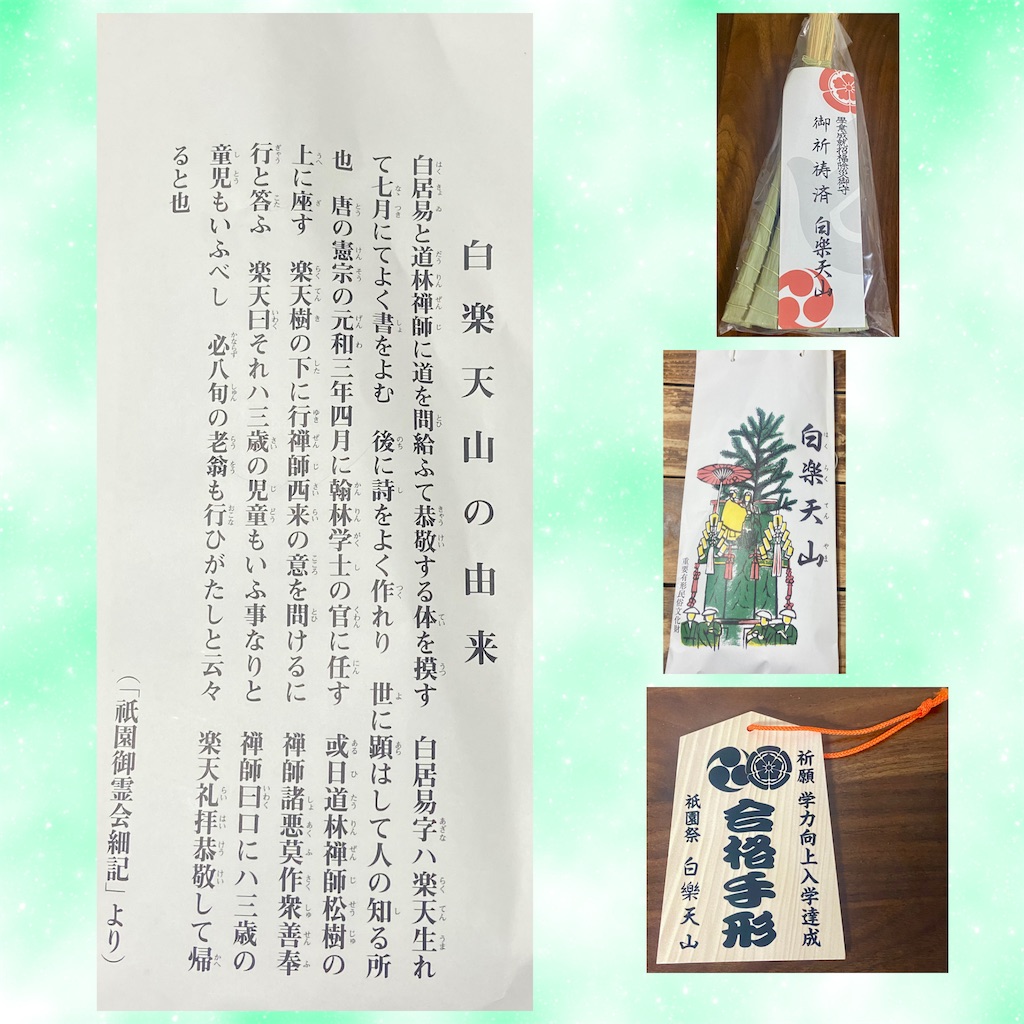 白楽天山の由来
白居易と道林禅師に道を問給ふて恭敬する体を摸す　白居易字ハ楽天生れ
て七月にてよく書をよむ　後に詩をよく作れり　世に顕はして人の知る所
也　唐の憲宗の元和三年四月に翰林学士の官に任す　或日道林禅師松樹の
上に座す　楽天樹の下に行禅師西来の意を問けるに　禅師諸悪莫作衆善奉
行と答ふ　楽天曰それハ三歳の児童もいふ事なりと　禅師曰口にハ三歳の
童児もいふべし　必八旬の老翁も行ひがたしと云々　楽天礼拝恭敬して帰
ると也
（「祇園御霊会細記」より）
學業成就招福除災御守
御祈祷済 白樂天山
白楽天山
はくらくてんやま
重要有形民俗文化財
祈願 学力向上入学達成
合格手形
祇園祭 白樂天山